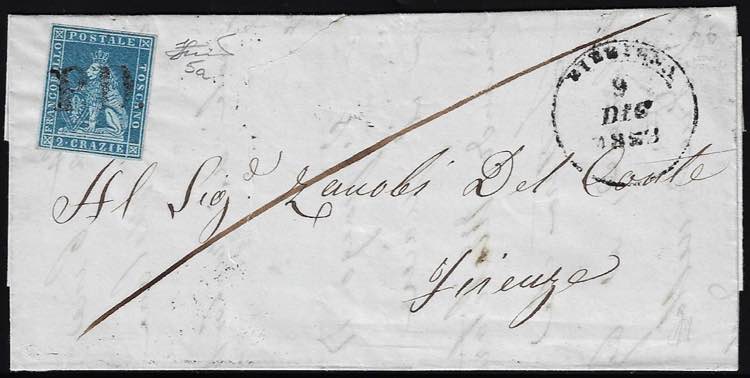 FRANCOBOLLO
POSTALE
TOSCANO
2 · CRAZIE
PD
5a
BIBBIENA
DIC
1853
Al Sig.r Zanobi Del Conte
Firenze